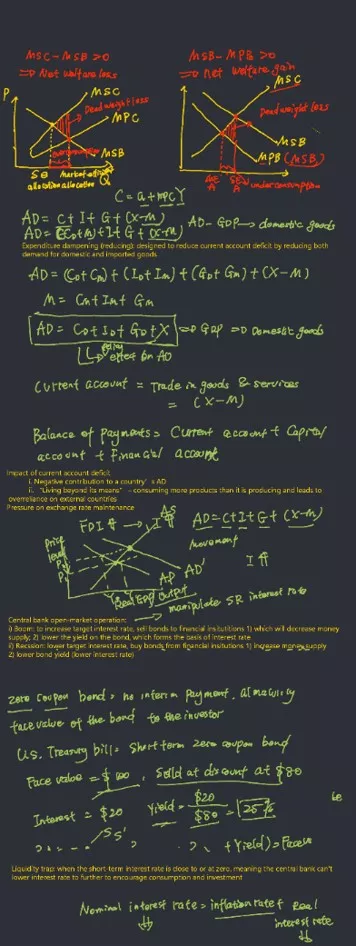 MSC-MSB>0
=> Net welfare loss
MSC
P
Dead weight loss
MPC
overconsumption
MSB
SO
Market
Q
allocation allocation
MSB-MPB>0
=> net welfare gain
MSC
Dead weight loss
MSB
MPB (MSB)
underconsumption
C = a+MPCY
AD = C+I+G+(X-M)
AD-GDP → domestic goods
Expenditure dampening (reducing): designed to reduce current account deficit by reducing both
demand for domestic and imported goods
AD = (CD+Cm)+(ID+Im)+(GD+Gm)+(X-M)
M = Cm+Im+Gm
AD = CD+ID+GD+X => GDP => Domestic goods
policy
effect on AD
Current account = Trade in goods & services
= (X-M)
Balance of Payments = Current account + Capital
account + Financial account
Impact of current account deficit
i. Negative contribution to a country's AD
ii. "Living beyond its means" - consuming more products than it is producing and leads to
overreliance on external countries
Pressure on exchange rate maintenance
FDI ⇑ → I ⇑
AS
AD = C+I+G+(X-M)
Price
level
movement
I ⇑
P
P
AD
AD'
Real GDP/Output
manipulate SR interest rate
Central bank open-market operation:
i) Boom: to increase target interest rate, sell bonds to financial insitutitions 1) which will decrease money
supply; 2) lower the yield on the bond, which forms the basis of interest rate
ii) Recission: lower target interest rate, buy bonds from financial insitutions 1) increase money supply
2) lower bond yield (lower interest rate)
zero coupon bond = no interim payment. at maturity
face value of the bond to the investor
U.S. Treasury bill = short term zero coupon bond
Face value = $100, Sold at discount at $80
Interest = $20
Yield = $20
$80
= 25%
be
+ Yield) = Face
Liquidity trap: when the short-term interest rate is close to or at zero, meaning the central bank can't
lower interest rate to further to encourage consumption and investment
Nominal interest rate = inflation rate + Real
interest rate